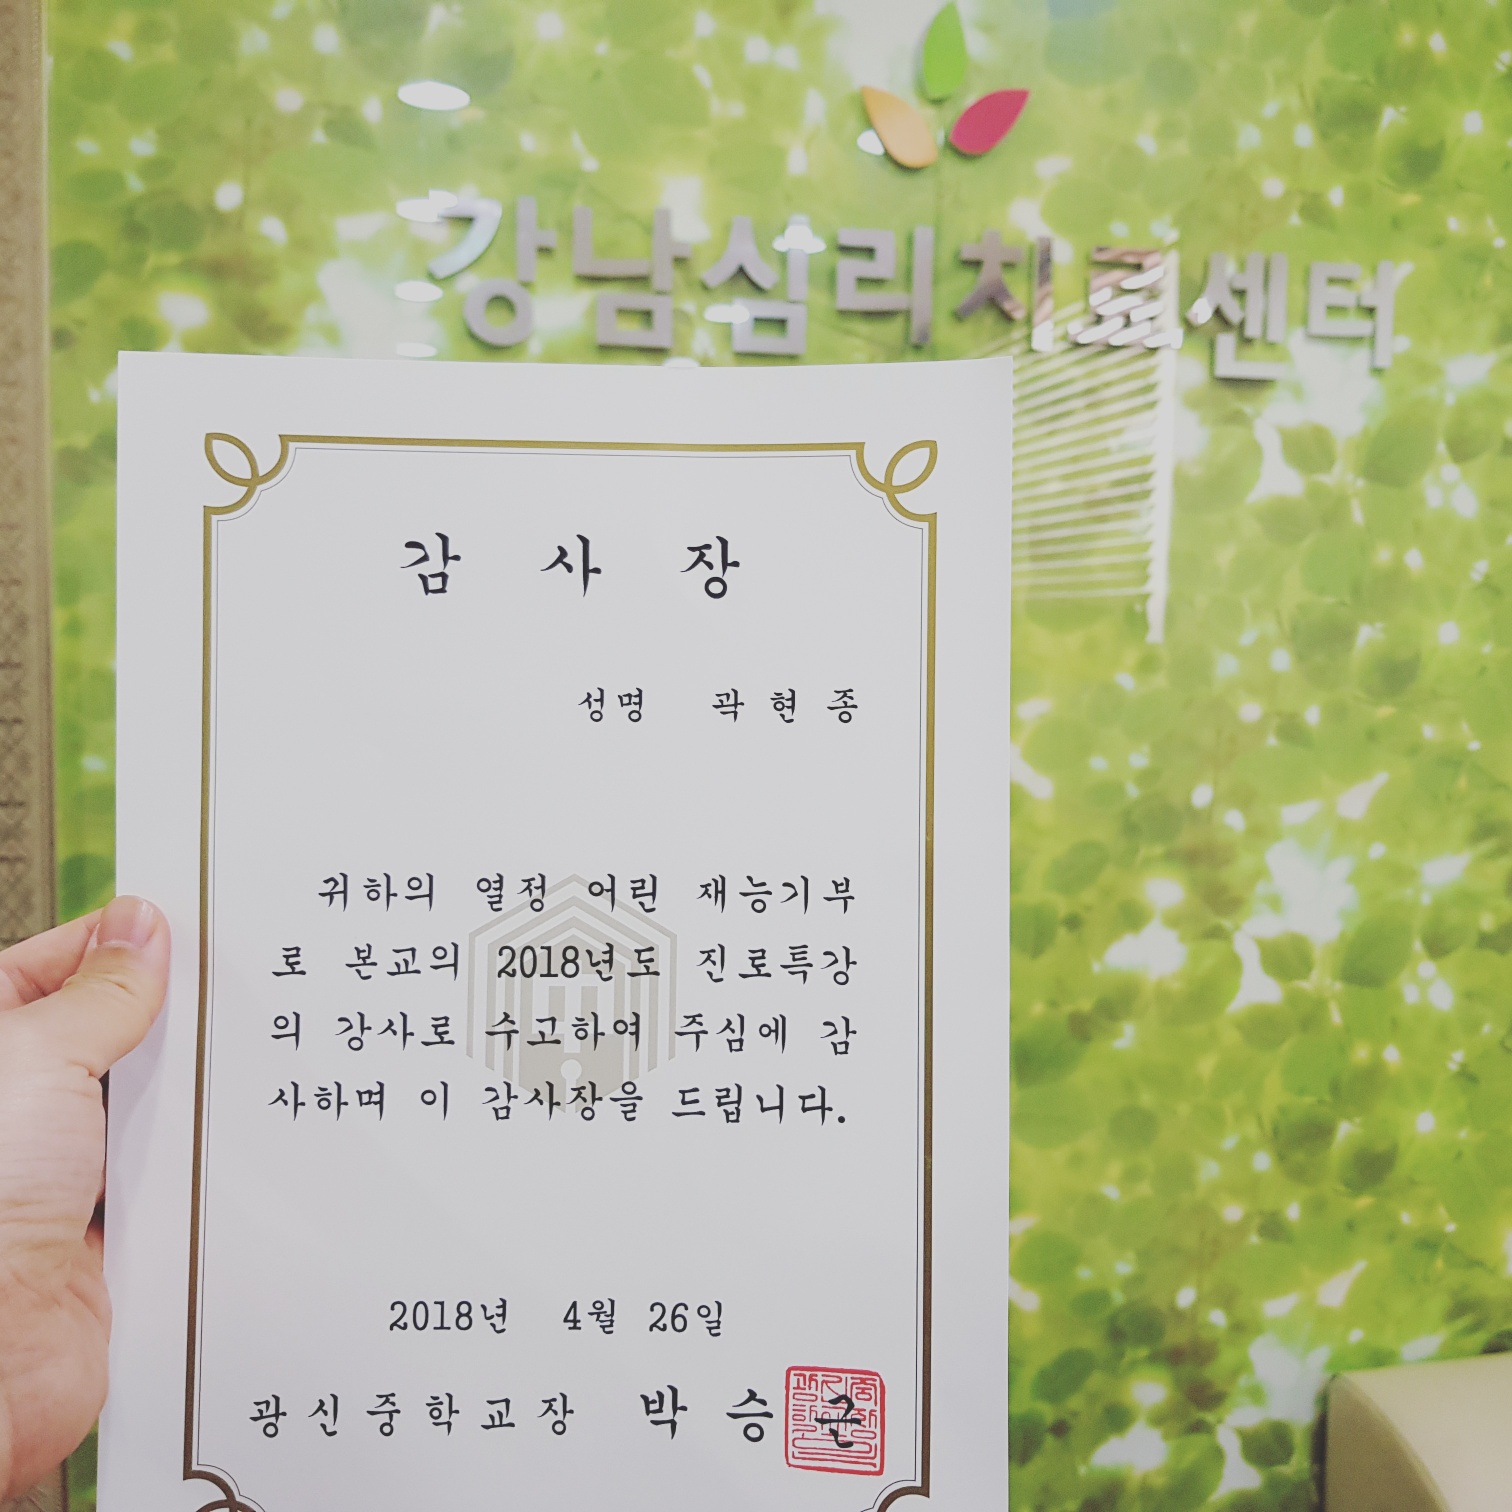 강남심리치료센터
감 사 장
성명 곽 현 종
귀하의 열정 어린 재능기부
로 본교의 2018년도 진로특강
의 강사로 수고하여 주심에 감
사하며 이 감사장을 드립니다.
2018년 4월 26일
광 신 중 학 교 장 박 승 근